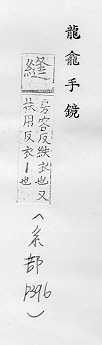 龍龕手鏡
縫
房容反紩衣也又
扶用反衣丨也
(糸部
p396)